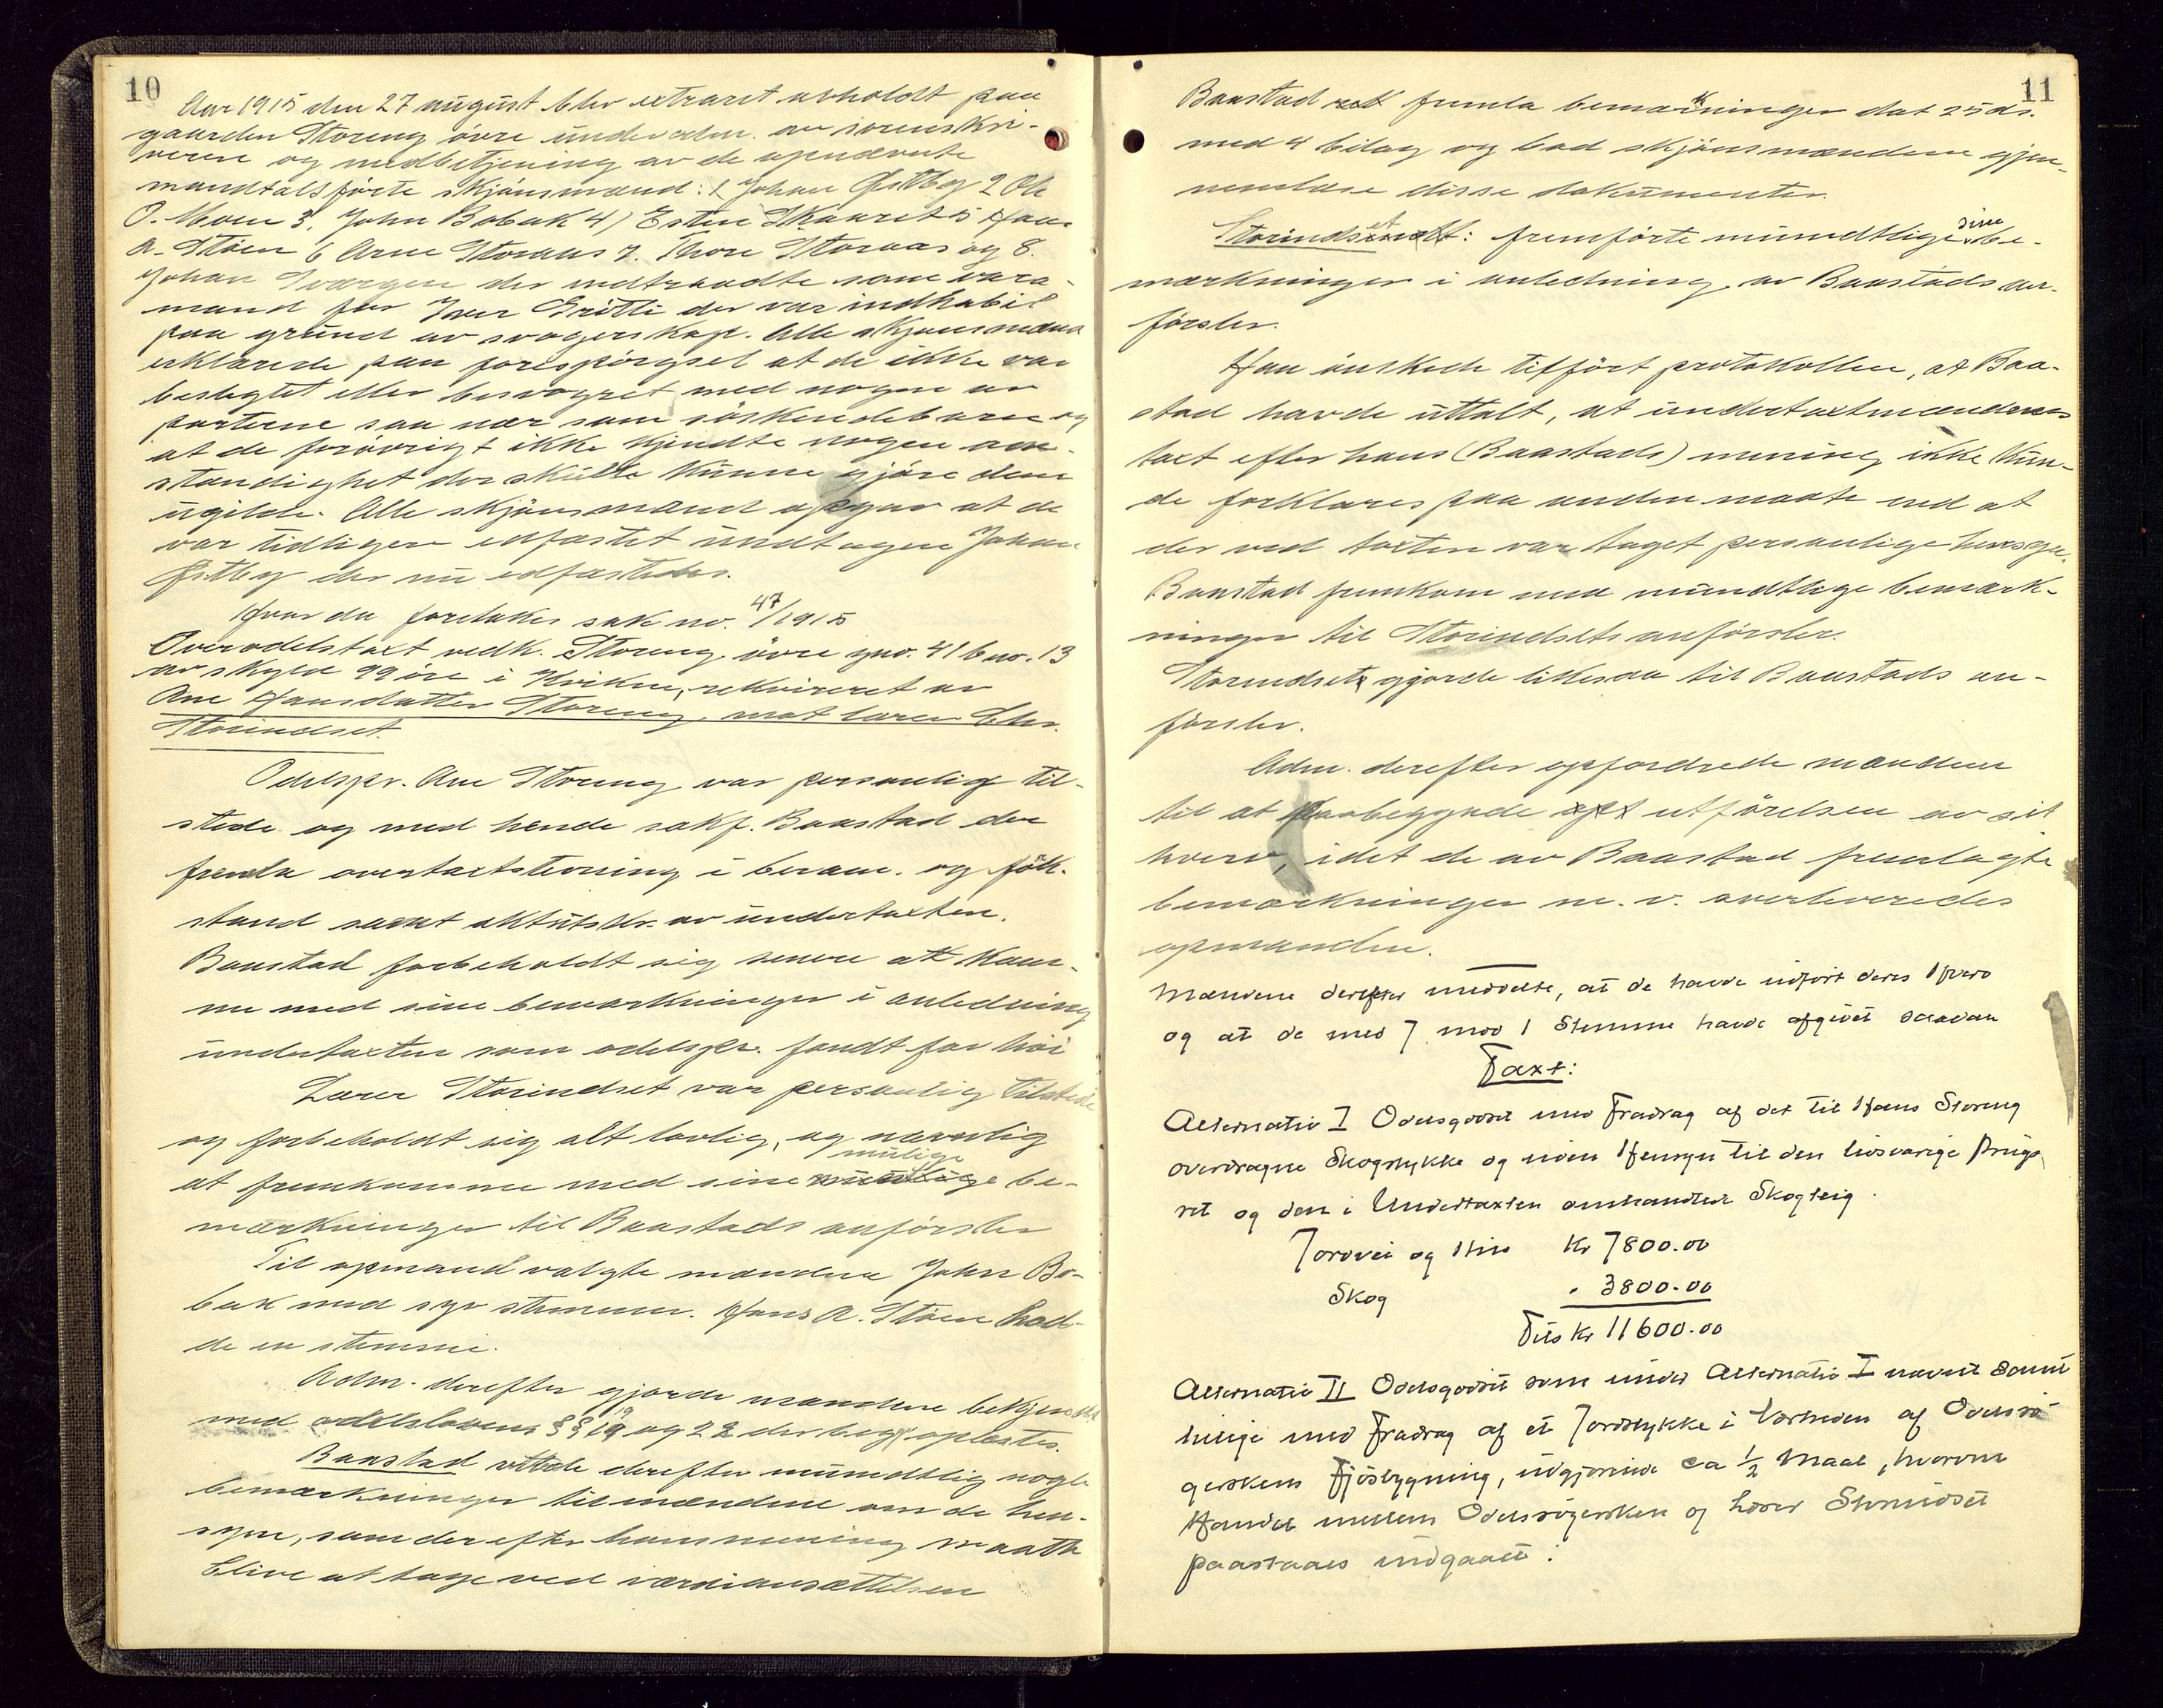 10
Aar 1915 den 27 august blev extraret avholdt paa
gaarden Storeng övre under adm. av sorenskri-
veren og med betjening av de opnævnte
mandtalsförte skjönsmænd: 1 Johan Östby 2 Ole
O. Moen 3. John Bobak 4) Esten Skaaret 5 Hans
A. Stöen 6 Arne Storaas 7. Thore Storaas og 8.
Johan der indtraadte som vara-
mand for Iver Gritti der var inhabil
paa grund av svogerskap. Alle skjönsmænd
erklærede paa forespörgsel at de ikke var
beslegtet eller besvogret med nogen av
parterne saa nær som söskendebarn og
at de forövrigt ikke kjendte nogen om-
stændighet der skulle kunne gjöre dem
ugilde. Alle skjönsmænd opgav at de
var tidligere edfæstet undtagen Johan
Östby der nu edfæstedes.
Hvor da foretokes sak no. 47/1915
Overodelstaxt vedk. Storeng övre gno. 41 bno. 13
av skyld 99 öre i Kvikne, rekvireret av
Ane Hansdatter Storeng mot lærer Chr.
Storindset.
Odelspr. Ane Storeng var personlig til-
stede og med hende sakf. Baastad der
fremla overtaxtstevning i beram. og fork.
stand samt aktutskr. av undertaxten.
Baastad forbeholdt sig senere at kom-
me med sine bemærkninger i anledning
undertaxten som odelspr. fandt for höi
Lærer Storindset var personlig tilstede
og forbeholdt sig alt lovlig, og navnlig
at fremkomme med sine mulige be-
mærkninger til Baastads anförsler
Til opmand valgte mændene John Bo-
bak med syv stemmer. Hans A. Stöen had-
de en stemme.
Adm. derefter gjorde mændene bekjendt
med odelslovens §§ 19 og 22 der begge oplæstes.
Baastad uttalte derefter mundtlig nogle
bemærkninger til mændene om de hen-
syn, som der efter hans mening maatte
blive at tage ved værdiansættelsen
11
Baastad fremla bemærkninger dat 25 ds.
med 4 bilag og bad skjönsmændene gjen-
nemlæse disse dokumenter.
Storindset: fremförte mundtlige sine be-
mærkninger i anledning av Baastads an-
försler.
Han önskede tilfört protokollen, at Baa-
stad havde uttalt, at undertaxtmændenes
taxt efter hans (Baastads) mening ikke kun-
de forklares paa anden maate end at
der ved taxten var taget personlige hensyn.
Baastad fremkom med mundtlige bemærk-
ninger til Storindsets anförsler.
Storindset gjorde likesaa til Baastads an-
försler.
Adm. derefter opfordrede mændene
til at paabegynde utförelsen av sit
hverv, idet de av Baastad fremlagte
bemærkninger m. v. overleveredes
opmanden.
Mændene derefter meddelte, at de havde udfört deres Hverv
og at de med 7 mod 1 Stemme havde afgivet saadan
Taxt:
Alternativ I Odelsgodset med Fradrag af det til Hans Storeng
overdragne Skogstykke og uden Hensyn til den livsvarige Brugs
ret og den i Undertaxten omhandlede Skogteig.
Jordvei og Hus Kr 7800.00
Skog " 3800.00
Tils Kr 11600.00
Alternativ II Odelsgodset som under Alternativ I nævnt samt
tillige med Fradrag af et Jordstykke i Nærheden af Odelssö-
gerskens Fjösbygning, udgjörende ca 1/2 Maal, hvorom
Handel mellem Odelssögersken og Lærer Storindset
paastaaes indgaaet: